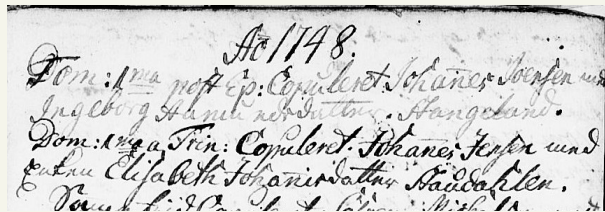 Ao 1748.
Dom: 1ma post Ep: Copuleret Johanes Svensen med
Ingeborg Hamundsdatter. Hangeland.
Dom: 1ma a Trin: Copuleret. Johanes Jensen med
Enken Elisabeth Johanisdatter Haudahlen.